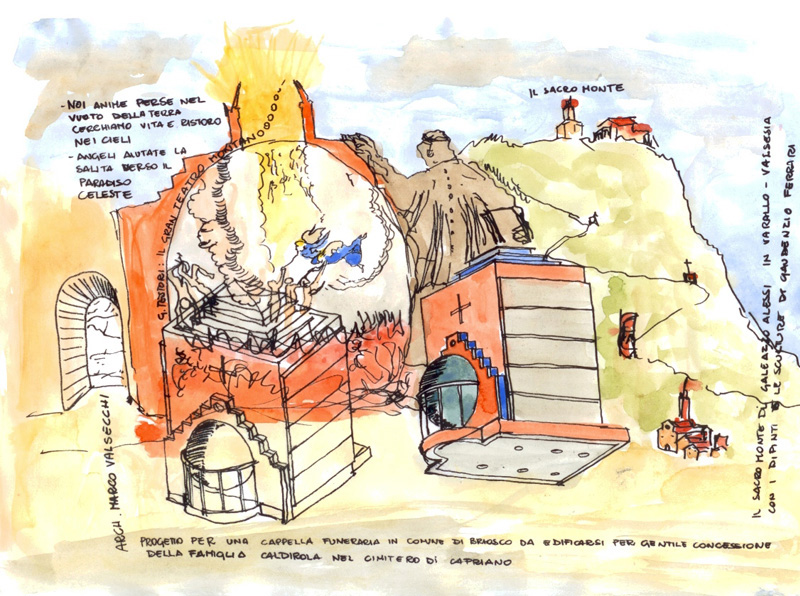 - NOI ANIME PERSE NEL
VUOTO DELLA TERRA
CERCHIAMO VITA E RISTORO
NEI CIELI
- ANGELI AIUTATE LA
SALITA VERSO IL
PARADISO
CELESTE
IL SACRO MONTE
G. TESTORI: IL GRAN TEATRO MONTANO
IL SACRO MONTE DI GALEAZZO ALESSI IN VARALLO - VALSESIA
CON I DIPINTI E LE SCULTURE DI GAUDENZIO FERRARI
ARCH. MARCO VALSECCHI
PROGETTO PER UNA CAPPELLA FUNERARIA IN COMUNE DI BRIOSCO DA EDIFICARSI PER GENTILE CONCESSIONE
DELLA FAMIGLIA CALDIROLA NEL CIMITERO DI CAPRIANO